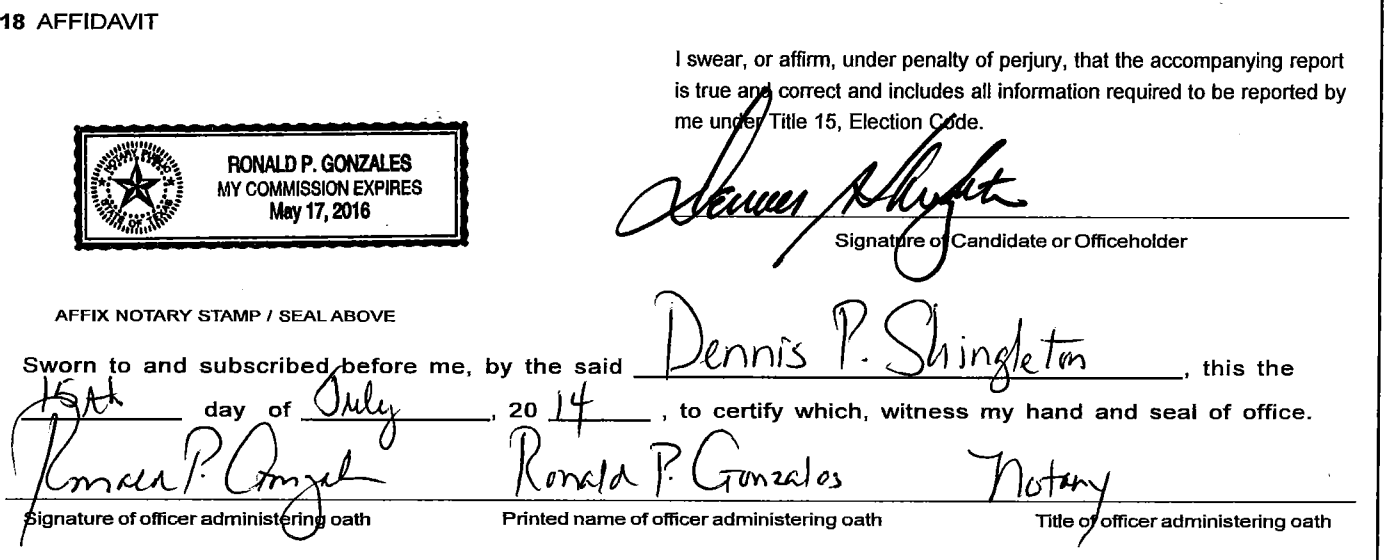 18 AFFIDAVIT
I swear, or affirm, under penalty of perjury, that the accompanying report
is true and correct and includes all information required to be reported by
me under Title 15, Election Code.
NOTARY PUBLIC
STATE OF TEXAS
RONALD P. GONZALES
MY COMMISSION EXPIRES
May 17, 2016
Dennis Shingleton
Signature of Candidate or Officeholder
AFFIX NOTARY STAMP / SEAL ABOVE
Sworn to and subscribed before me, by the said Dennis P. Shingleton, this the
15th day of July, 20 14, to certify which, witness my hand and seal of office.
Ronald P. Gonzales Ronald P. Gonzales Notary
Signature of officer administering oath Printed name of officer administering oath Title of officer administering oath